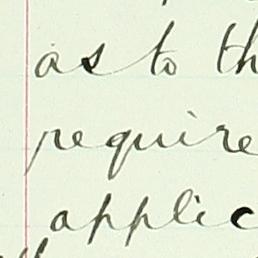 as to th
require
applic